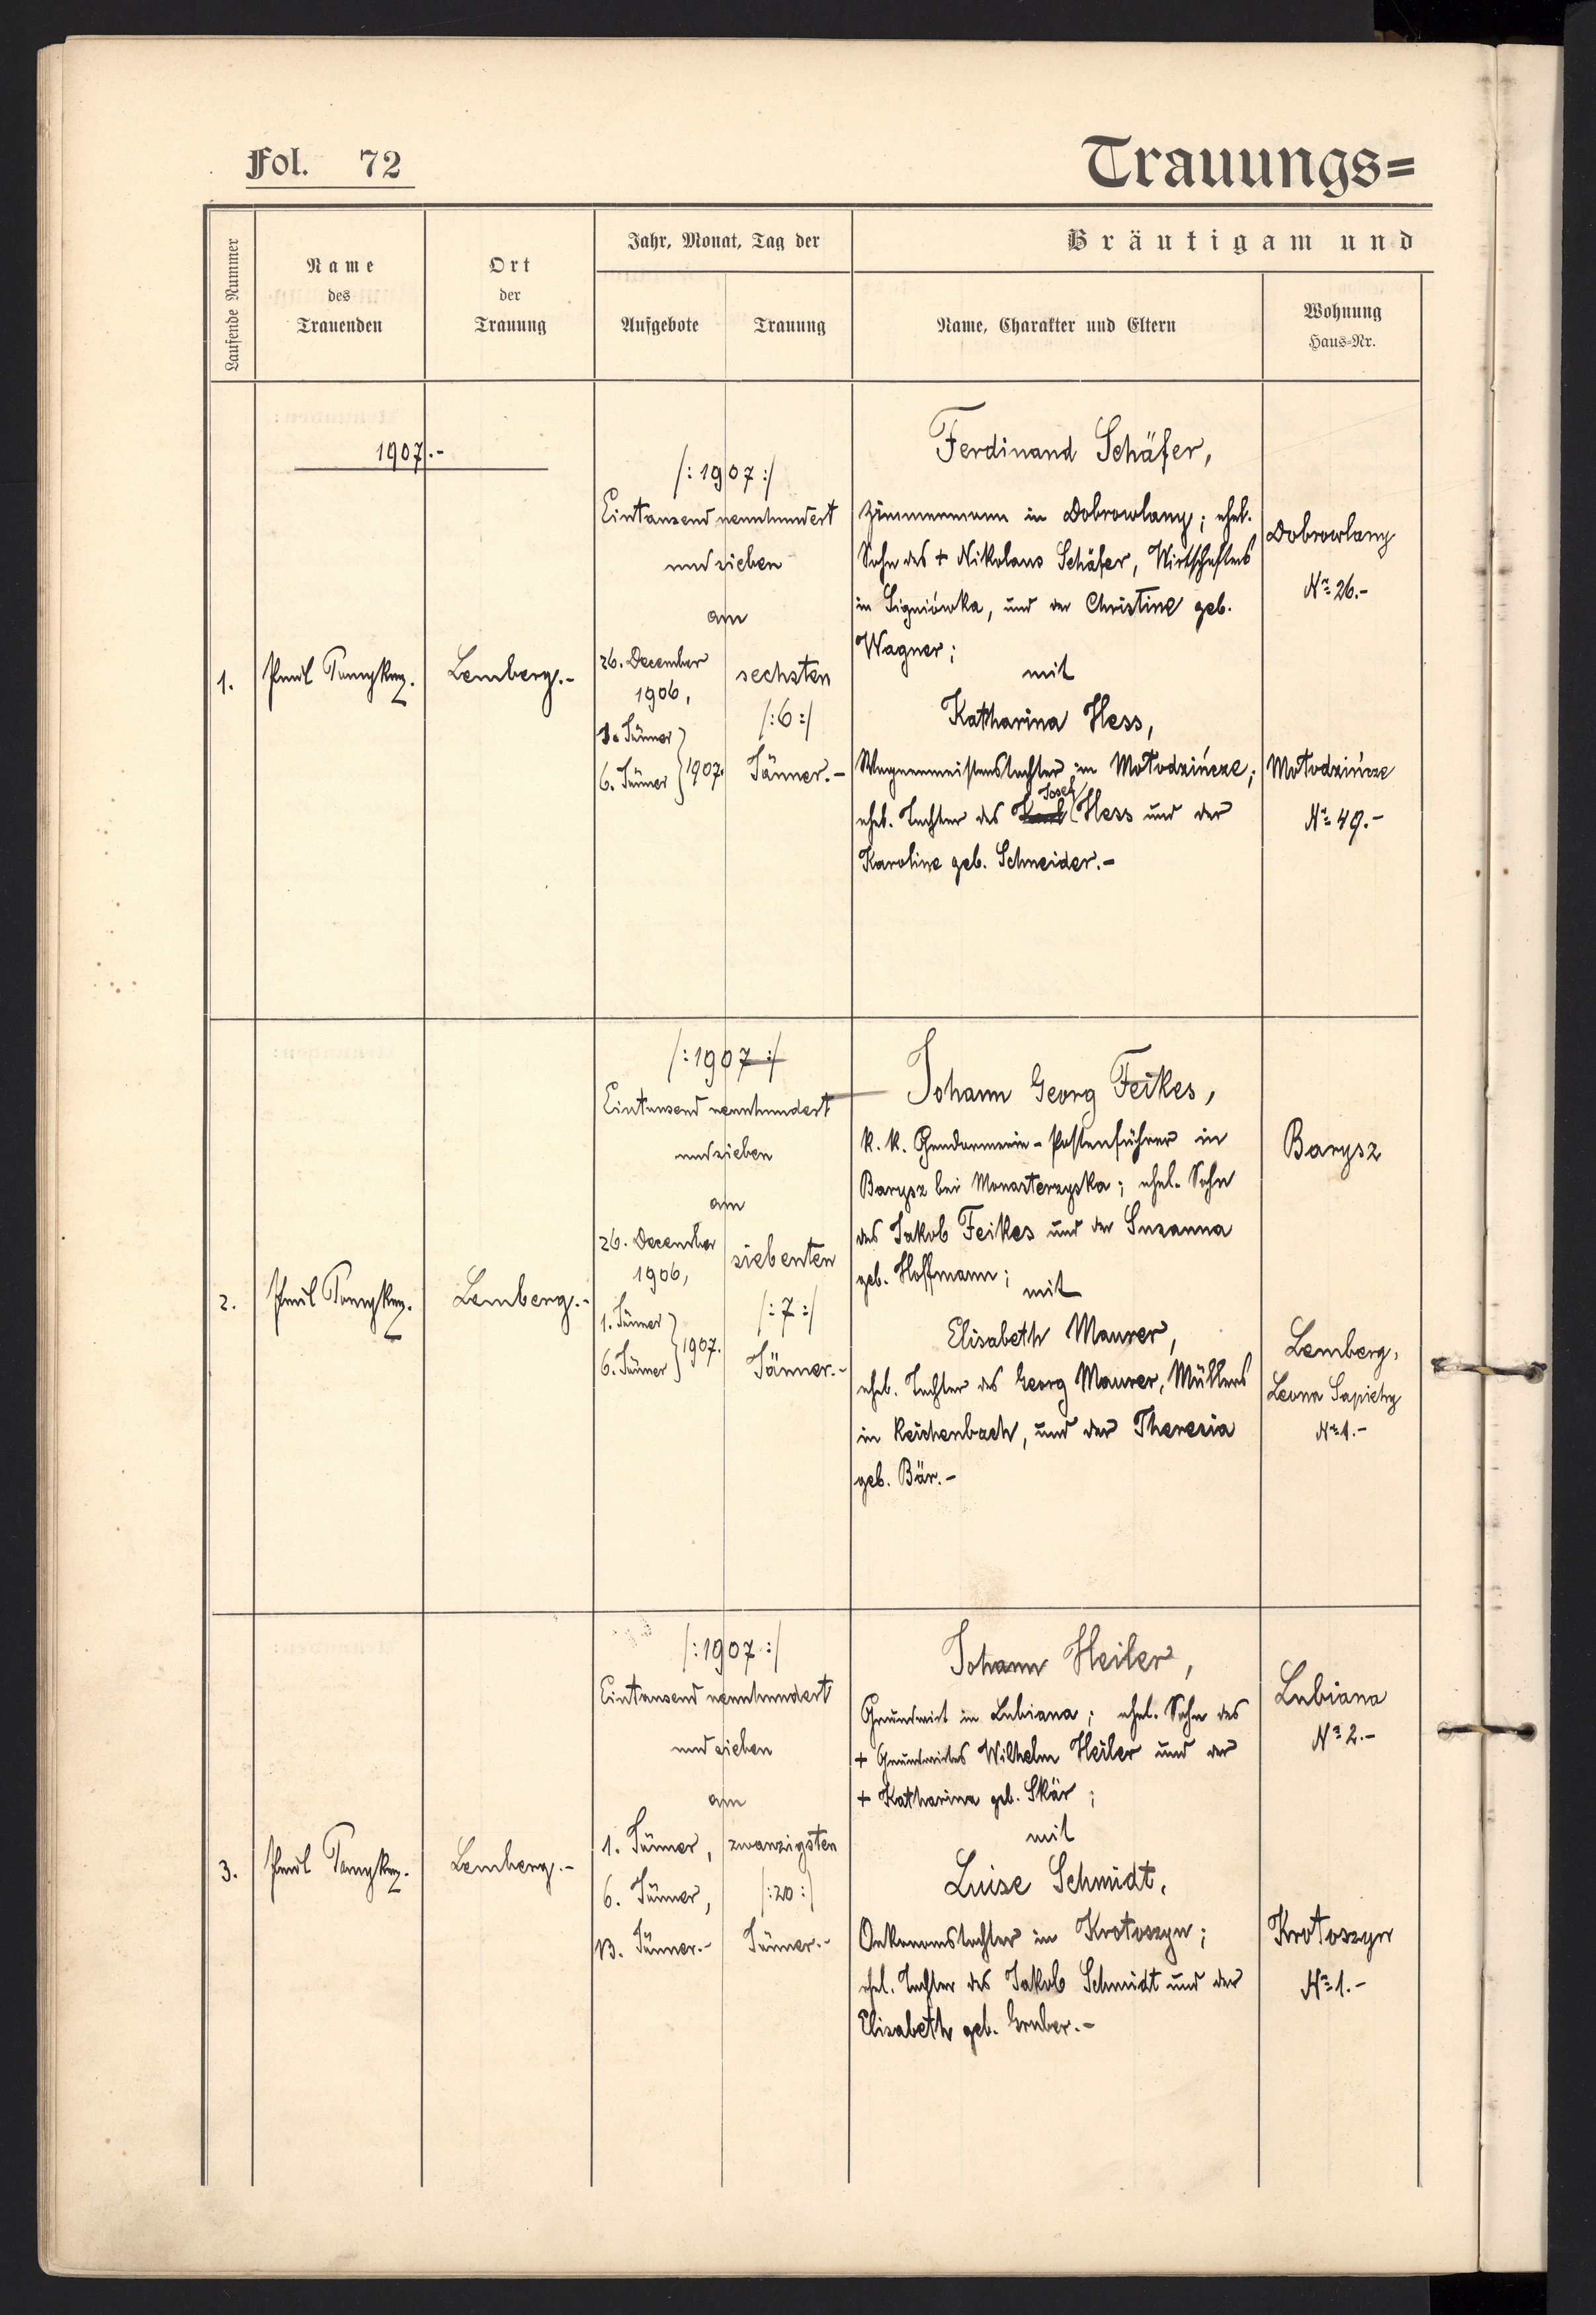 Fol. 72
Trauungs=
Laufende Nummer
Name
des
Trauenden
Ort
der
Trauung
Jahr, Monat, Tag der
Aufgebote
Trauung
Bräutigam und
Name, Charakter und Eltern
Wohnung
Haus=Nr.
1907.-
1.
Lemberg.-
/: 1907 :/
Eintausend neunhundert
und sieben
am
26. December
1906,
1. Jänner
6. Jänner
1907.
sechsten
/: 6 :/
Jänner.-
Ferdinand Schäfer,
Zimmermann in Dobrowlany; ehel.
Sohn des + Nikolaus Schäfer, Wirtschafters
in Ligniówka, und der Christine geb.
Wagner;
mit
Katharina Hess,
Wagnermeisterstochter in Mołodzińcze;
Josef
ehel. Tochter des Karl Hess und der
Karoline geb. Schneider.-
Dobrowlany
Nr. 26.-
Mołodzińcze
Nr. 49.-
2.
Lemberg.-
/: 1907 :/
Eintausend neunhundert
und sieben
am
26. December
1906,
1. Jänner
6. Jänner
1907.
siebenten
/: 7 :/
Jänner.-
Johann Georg Feikes,
k. k. Gendarmerie-Postenführer in
Barysz bei Monasterzyska; ehel. Sohn
des Jakob Feikes und der Susanna
geb. Hoffmann;
mit
Elisabeth Maurer,
ehel. Tochter des Georg Maurer, Müllers
in Reichenbach, und der Theresia
geb. Bär.-
Barysz
Lemberg,
Leona Sapiehy
Nr. 1.-
3.
Lemberg.-
/: 1907 :/
Eintausend neunhundert
und sieben
am
1. Jänner,
6. Jänner,
13. Jänner.-
zwanzigsten
/: 20 :/
Jänner.-
Johann Heiler,
Grundwirt in Lubiana; ehel. Sohn des
+ Grundwirtes Wilhelm Heiler und der
+ Katharina geb. Skär;
mit
Luise Schmidt,
Oekonomstochter in Krotoszyn;
ehel. Tochter des Jakob Schmidt und der
Elisabeth geb. Gruber.-
Lubiana
Nr. 2.-
Krotoszyn
Nr. 1.-